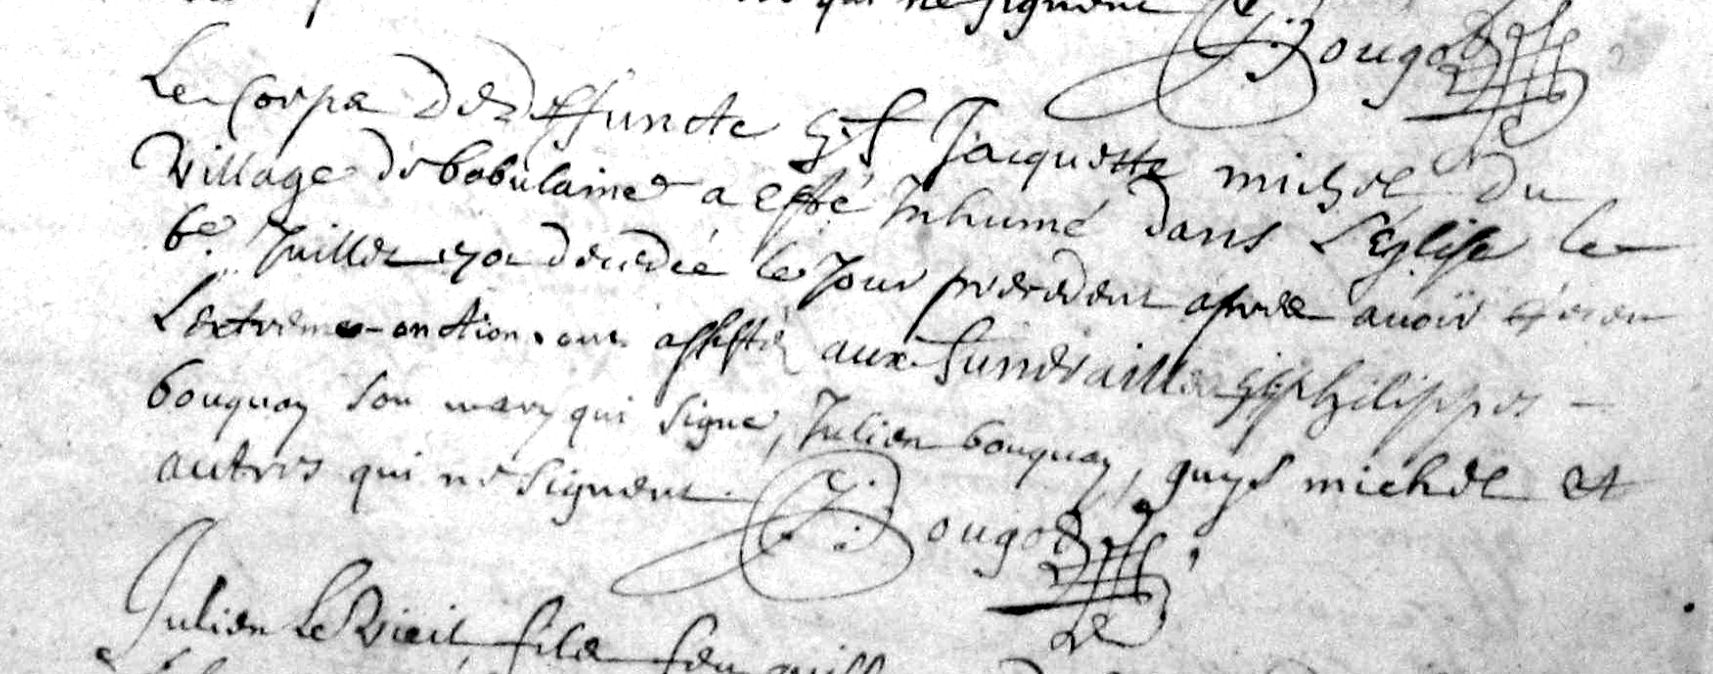 qui ne signent J: Bougot
Le Corps de deffuncte h f Jacquette michel du
village de bobulaine a esté Inhumé dans L'église le
6e Juillet 1702 decedée le Jour precedent apres avoir receu
L'extreme-onction, ont assisté aux funerailles h h philippes
bouquay son mary qui signe, Julien bouquay, guy michel et
autres qui ne signent. J: Bougot
Julien Le Vieil fils feu